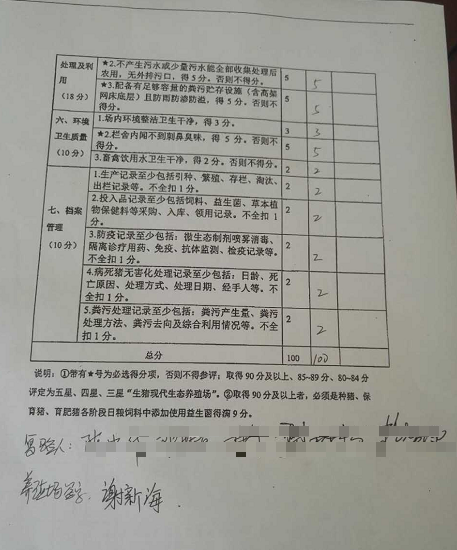 处理及利用(18分) ★2.不产生污水或少量污水能全部收集处理后农用,无外排污口,得5分。否则不得分。 5 5
★3.配备有足够容量的粪污贮存设施(含高架网床底层)且防雨防渗防溢,得5分,否则不得分。 5 5
六、环境卫生质量(10分) 1.场内环境整洁卫生干净,得3分。 3 3
★2.栏舍内闻不到刺鼻臭味,得5分。否则不得分。 5 5
3.畜禽饮用水卫生干净,得2分。否则不得分。 2 2
七、档案管理(10分) 1.生产记录至少包括引种、繁殖、存栏、淘汰、出栏记录等。不全扣1分。 2 2
2.投入品记录至少包括饲料、益生菌、草本植物保健料等采购、入库、领用记录。不全扣1分。 2 2
3.防疫记录至少包括:微生态制剂喷雾消毒、隔离诊疗用药、免疫、抗体监测、检疫记录等。不全扣1分。 2 2
4.病死猪无害化处理记录至少包括:日龄、死亡原因、处理方式、处理日期、经手人等。不全扣1分。 2 2
5.粪污处理记录至少包括:粪污产生量、粪污处理方法、粪污去向及综合利用情况等。不全扣1分。 2 2
总分 100 100
说明:①带有★号为必选得分项,否则不得参评;取得90分及以上、85-89分、80-84分
评定为五星、四星、三星“生猪现代生态养殖场”。②取得90分及以上者,必须是种猪、保
育猪、育肥猪各阶段日粮饲料中添加使用益生菌得满9分。
养殖场签字:谢新海